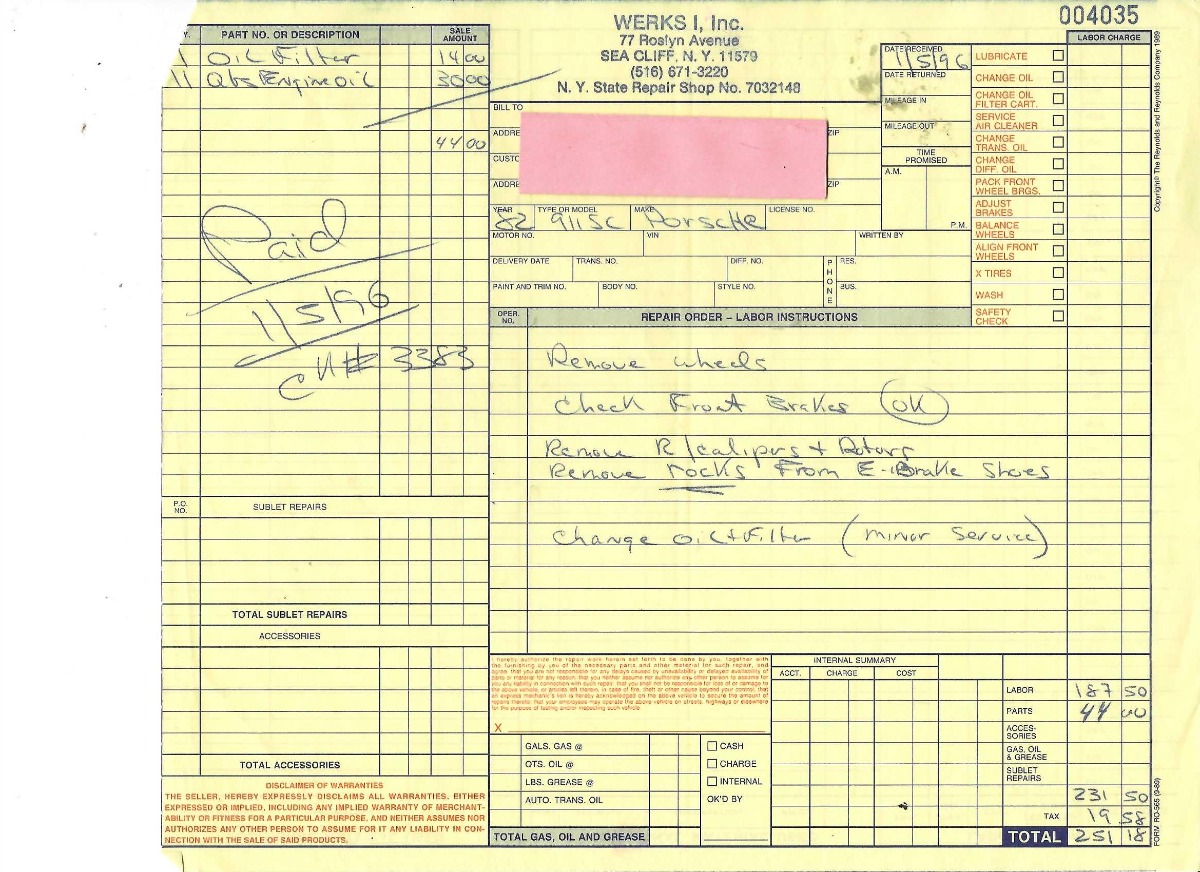 004035
WERKS I, Inc.
77 Roslyn Avenue
SEA CLIFF, N. Y. 11579
(516) 671-3220
N. Y. State Repair Shop No. 7032148
Y. PART NO. OR DESCRIPTION SALE AMOUNT
1 Oil Filter 14 00
11 Qts Engine oil 30 00
44 00
Paid
1/5/96
CH# 3383
P.O. NO. SUBLET REPAIRS
TOTAL SUBLET REPAIRS
ACCESSORIES
TOTAL ACCESSORIES
DISCLAIMER OF WARRANTIES
THE SELLER, HEREBY EXPRESSLY DISCLAIMS ALL WARRANTIES, EITHER
EXPRESSED OR IMPLIED, INCLUDING ANY IMPLIED WARRANTY OF MERCHANT-
ABILITY OR FITNESS FOR A PARTICULAR PURPOSE, AND NEITHER ASSUMES NOR
AUTHORIZES ANY OTHER PERSON TO ASSUME FOR IT ANY LIABILITY IN CON-
NECTION WITH THE SALE OF SAID PRODUCTS.
BILL TO
ADDRE ZIP
CUSTO
ADDRE ZIP
YEAR TYPE OR MODEL MAKE LICENSE NO.
82 911SC Porsche
MOTOR NO. VIN WRITTEN BY
DELIVERY DATE TRANS. NO. DIFF. NO. PHONE RES.
PAINT AND TRIM NO. BODY NO. STYLE NO. BUS.
DATE RECEIVED
1/5/96
DATE RETURNED
MILEAGE IN
MILEAGE OUT
TIME PROMISED
A.M.
P.M.
LABOR CHARGE
LUBRICATE
CHANGE OIL
CHANGE OIL FILTER CART.
SERVICE AIR CLEANER
CHANGE TRANS. OIL
CHANGE DIFF. OIL
PACK FRONT WHEEL BRGS.
ADJUST BRAKES
BALANCE WHEELS
ALIGN FRONT WHEELS
X TIRES
WASH
SAFETY CHECK
OPER. NO. REPAIR ORDER – LABOR INSTRUCTIONS
Remove wheels
Check Front Brakes (OK)
Remove R/calipers + Rotors
Remove rocks From E-Brake Shoes
Change oil + Filter (minor service)
I hereby authorize the repair work herein set forth to be done by you, together with
the furnishing by you of the necessary parts and other material for such repair, and
agree that you are not responsible for any delays caused by unavailability or delayed availability of
parts or material for any reason; that you neither assume nor authorize any other person to assume for
you any liability in connection with such repair; that you shall not be responsible for loss of or damage to
the above vehicle, or articles left therein, in case of fire, theft or other cause beyond your control; that
an express mechanic's lien is hereby acknowledged on the above vehicle to secure the amount of
repairs thereto; that your employees may operate the above vehicle on streets, highways or elsewhere
for the purpose of testing and/or inspecting such vehicle.
X
GALS. GAS @
QTS. OIL @
LBS. GREASE @
AUTO. TRANS. OIL
TOTAL GAS, OIL AND GREASE
CASH
CHARGE
INTERNAL
OK'D BY
INTERNAL SUMMARY
ACCT. CHARGE COST
LABOR 187 50
PARTS 44 00
ACCES-
SORIES
GAS, OIL & GREASE
SUBLET REPAIRS
231 50
TAX 19 58
TOTAL 251 18
Copyright© The Reynolds and Reynolds Company 1989
FORM RO-565 (9-89)